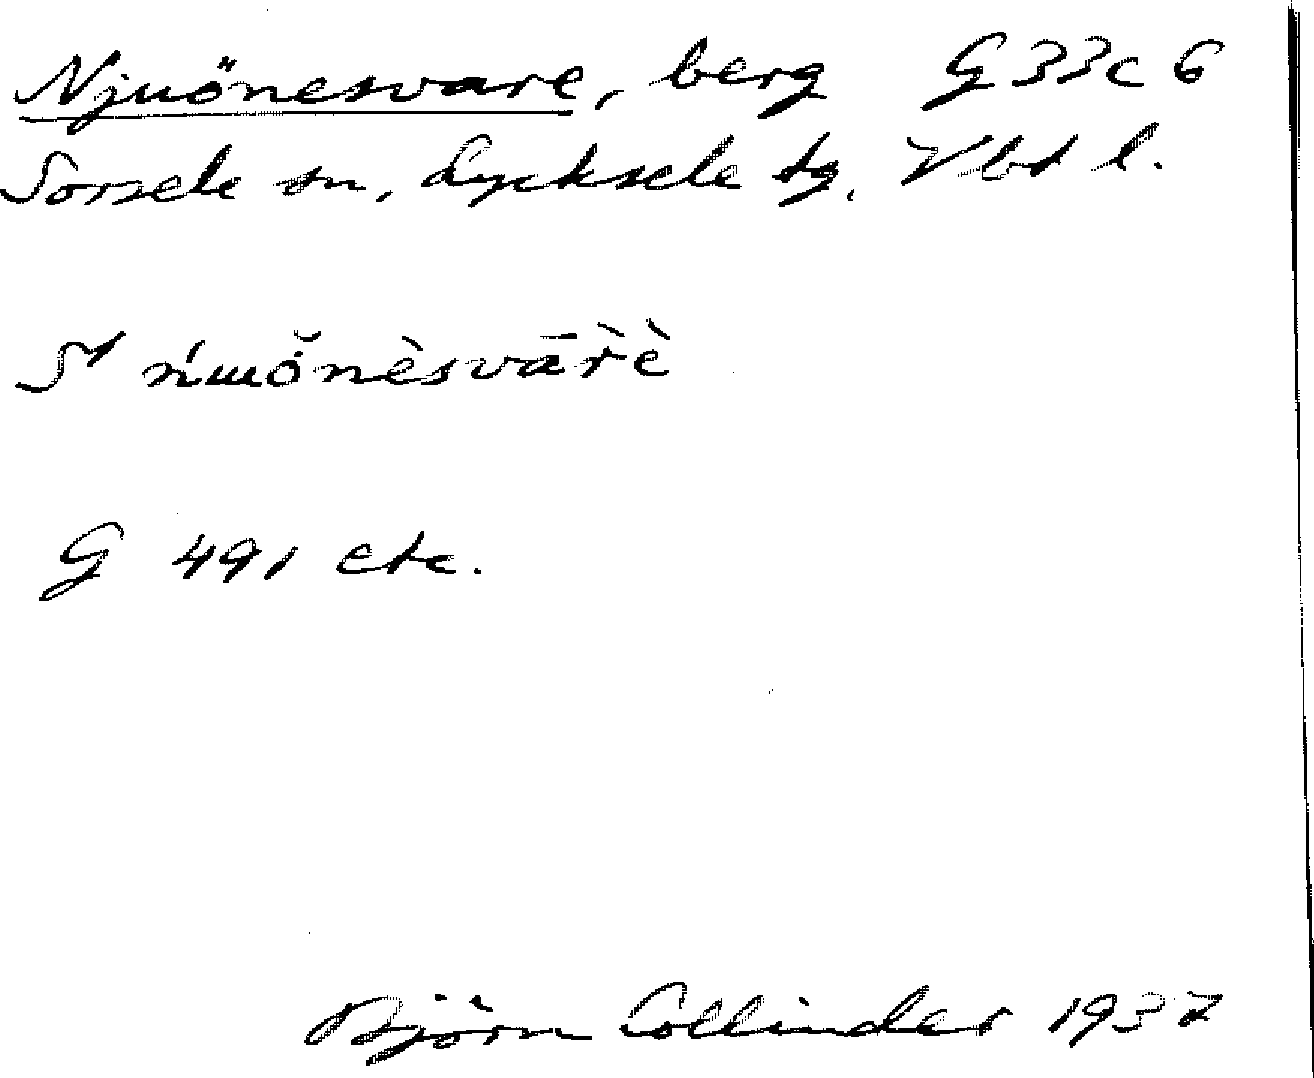 Njuönesvare, berg G 33c 6
Sorsele sn, Lycksele tg, Vbt l.
St ńɯö̆nèsvār̀è
G 491 etc.
Björn Collinder 1937